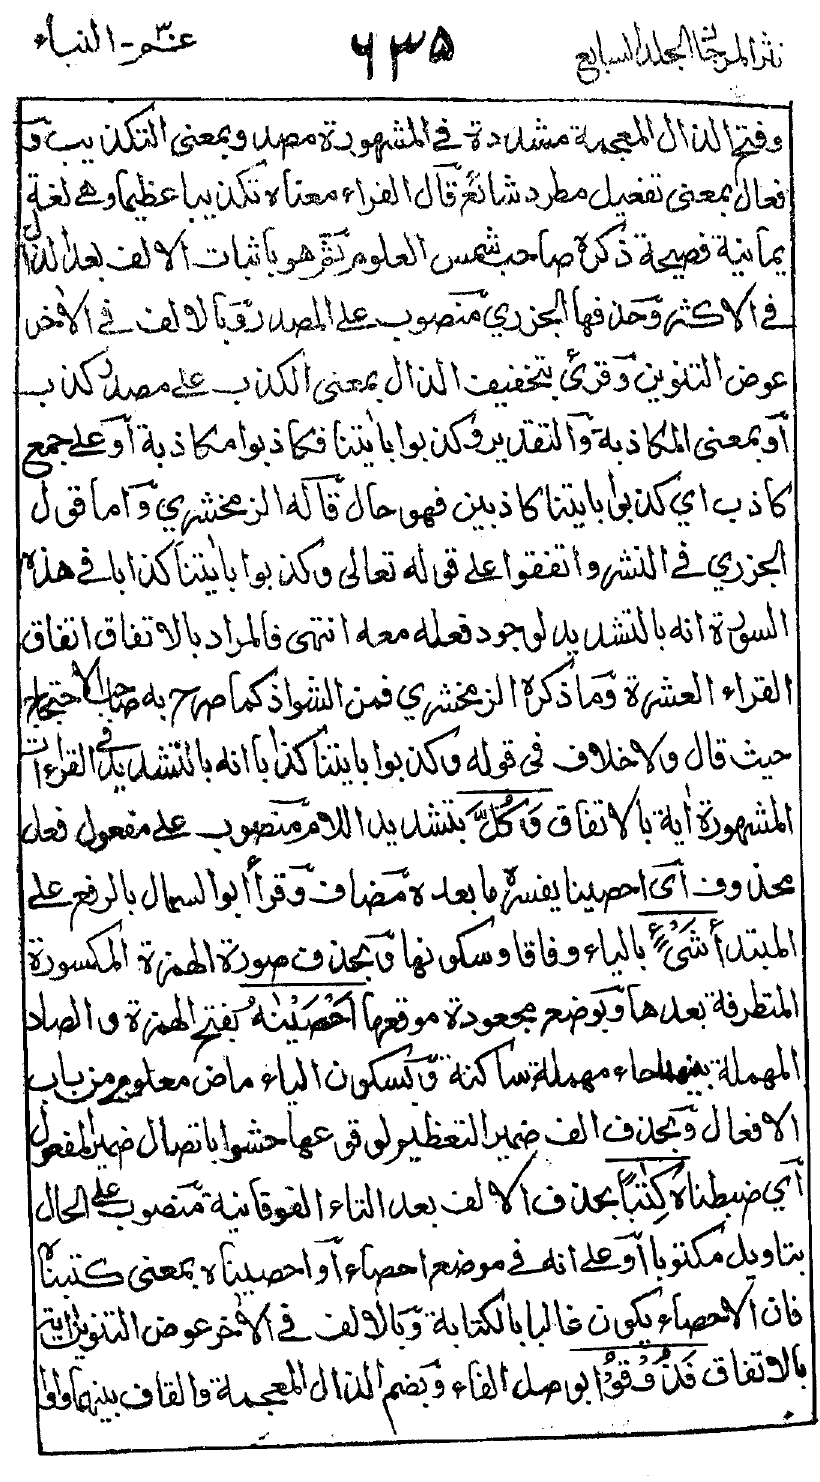 نثر المرجان الجلد السابع ٦٣٥ عمّ - النباء
وفتح الذال المعجمة مشددة في المشهورة مصدر وبمعنى التكذيب و
فعال بمعنى تفعيل مطرد شائع قال الفراء معناه تكذيبا عظيما وهي لغة
يمانية فصيحة ذكره صاحب شمس العلوم ثم هو باثبات الالف بعد الذال
في الاكثر وحذفها الجزري منصوب على المصدر وبالالف في الاخر
عوض التنوين وقرئ بتخفيف الذال بمعنى الكذب على مصدر كذب
أو بمعنى المكاذبة والتقدير وكذبوا بايتنا فكاذبوا مكاذبة أو على جمع
كاذب اي كذبوا بايتنا كاذبين فهو حال قاله الزمخشري واما قول
الجزري في النشر واتفقوا على قوله تعالى وكذبوا بايتنا كذابا في هذه
السورة انه بالتشديد لوجود فعله معه انتهى فالمراد بالاتفاق اتفاق
القراء العشرة وما ذكره الزمخشري فمن الشواذ كما صرح به صاحب الاحتجاج
حيث قال ولاخلاف في قوله وكذبوا بايتنا كذابا انه بالتشديد في القراءات
المشهورة اية بالاتفاق وَكُلَّ بتشديد اللام منصوب على مفعول فعل
محذوف أى احصينا يفسره ما بعده مضاف وقرأ ابو السمال بالرفع على
المبتدأ شَيْءٍ بالياء وفاقا وسكونها وبحذف صورة الهمزة المكسورة
المتطرفة بعدها وبوضع مجعودة موقعها اَحْصَيْنٰهُ بفتح الهمزة والصاد
المهملة بينهما حاء مهملة ساكنة وبسكون الياء ماض معلوم من باب
الافعال وبحذف الف ضمير التعظيم لوقوعها حشوا باتصال ضمير المفعول
أي ضبطناه كِتٰبًا بحذف الالف بعد التاء الفوقانية منصوب على الحال
بتاويل مكتوبا أو على انه في موضع احصاء أو احصيناه بمعنى كتبناه
فان الاحصاء يكون غالبا بالكتابة وبالالف في الاخر عوض التنوين اية
بالاتفاق فَذُوْقُوْا بوصل الفاء وبضم الذال المعجمة والقاف بينهما واو